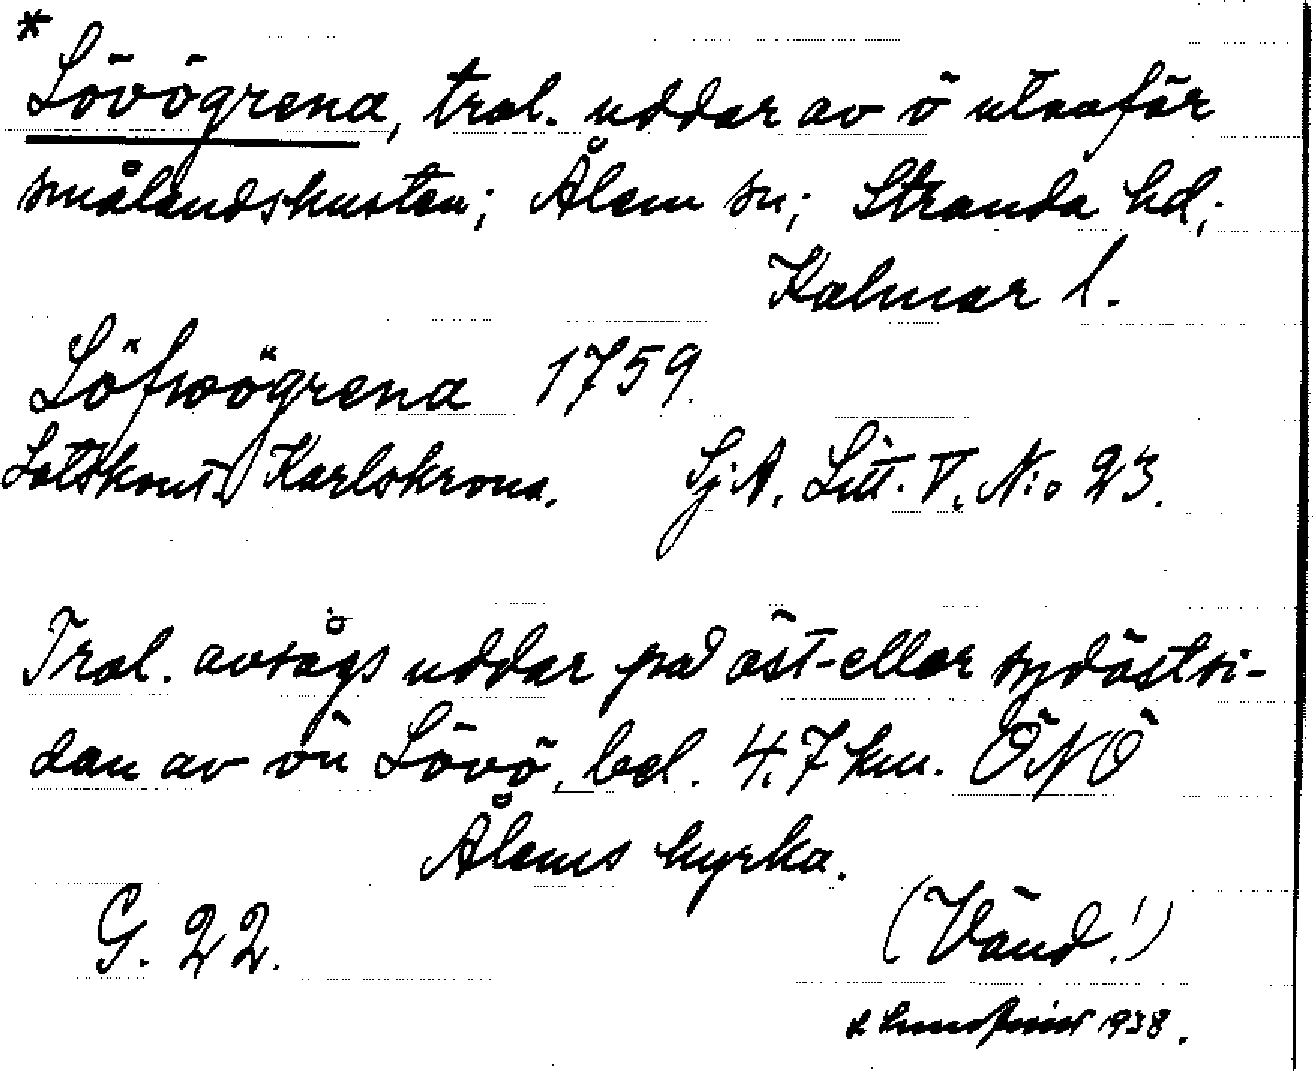 *
Lövögrena, trol. uddar av ö utanför
smålandskusten; Ålem sn; Stranda hd;
Kalmar l.
Löfwögrena 1759.
Lotskont. Karlskrona. Sj.A. Litt. V. N:o 23.
Trol. avsågs uddar på öst- eller sydöstsi-
dan av ön Lövö, bel. 4.7 km. ÖNÖ
Ålems kyrka.
G. 22. (Vänd!)
1938.